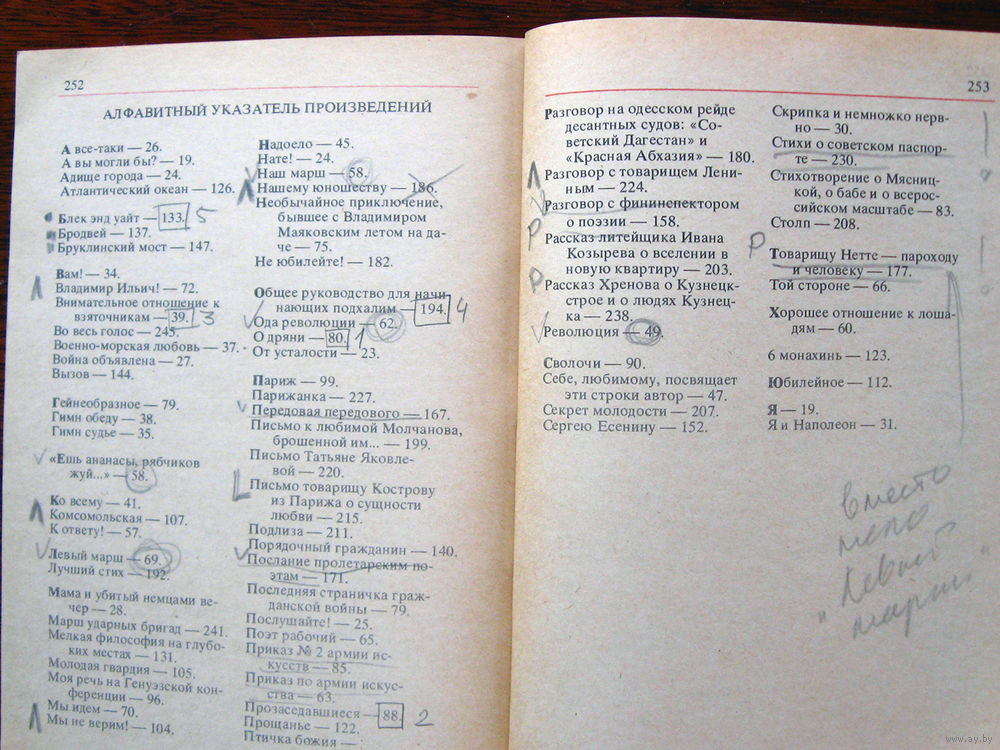 252
АЛФАВИТНЫЙ УКАЗАТЕЛЬ ПРОИЗВЕДЕНИЙ
А все-таки — 26.
А вы могли бы? — 19.
Адище города — 24.
Атлантический океан — 126.
Блек энд уайт — 133. 5
Бродвей — 137.
Бруклинский мост — 147.
Вам! — 34.
Владимир Ильич! — 72.
Внимательное отношение к
взяточникам — 39. 3
Во весь голос — 245.
Военно-морская любовь — 37.
Война объявлена — 27.
Вызов — 144.
Гейнеобразное — 79.
Гимн обеду — 38.
Гимн судье — 35.
«Ешь ананасы, рябчиков
жуй...» — 58.
Ко всему — 41.
Комсомольская — 107.
К ответу! — 57.
Левый марш — 69.
Лучший стих — 192.
Мама и убитый немцами ве-
чер — 28.
Марш ударных бригад — 241.
Мелкая философия на глубо-
ких местах — 131.
Молодая гвардия — 105.
Моя речь на Генуэзской кон-
ференции — 96.
Мы идем — 70.
Мы не верим! — 104.
Надоело — 45.
Нате! — 24.
Наш марш — 58.
Нашему юношеству — 186.
Необычайное приключение,
бывшее с Владимиром
Маяковским летом на да-
че — 75.
Не юбилейте! — 182.
Общее руководство для начи-
нающих подхалим — 194. 4
Ода революции — 62.
О дряни — 80. 1
От усталости — 23.
Париж — 99.
Парижанка — 227.
Передовая передового — 167.
Письмо к любимой Молчанова,
брошенной им... — 199.
Письмо Татьяне Яковле-
вой — 220.
Письмо товарищу Кострову
из Парижа о сущности
любви — 215.
Подлиза — 211.
Порядочный гражданин — 140.
Послание пролетарским по-
этам — 171.
Последняя страничка граж-
данской войны — 79.
Послушайте! — 25.
Поэт рабочий — 65.
Приказ № 2 армии ис-
кусств — 85.
Приказ по армии искус-
ства — 63.
Прозаседавшиеся — 88. 2
Прощанье — 122.
Птичка божия —
253
Разговор на одесском рейде
десантных судов: «Со-
ветский Дагестан» и
«Красная Абхазия» — 180.
Разговор с товарищем Лени-
ным — 224.
Разговор с фининспектором
о поэзии — 158.
Р
Рассказ литейщика Ивана
Козырева о вселении в
новую квартиру — 203.
Р
Рассказ Хренова о Кузнецк-
строе и о людях Кузнец-
ка — 238.
Революция — 49.
Сволочи — 90.
Себе, любимому, посвящает
эти строки автор — 47.
Секрет молодости — 207.
Сергею Есенину — 152.
Скрипка и немножко нерв-
но — 30.
Стихи о советском паспор-
те — 230.
Стихотворение о Мясниц-
кой, о бабе и о всерос-
сийском масштабе — 83.
Столп — 208.
Р
Товарищу Нетте — пароходу
и человеку — 177.
Той стороне — 66.
Хорошее отношение к лоша-
дям — 60.
6 монахинь — 123.
Юбилейное — 112.
Я — 19.
Я и Наполеон — 31.
вместо
"Левый
марш"
www.ay.by